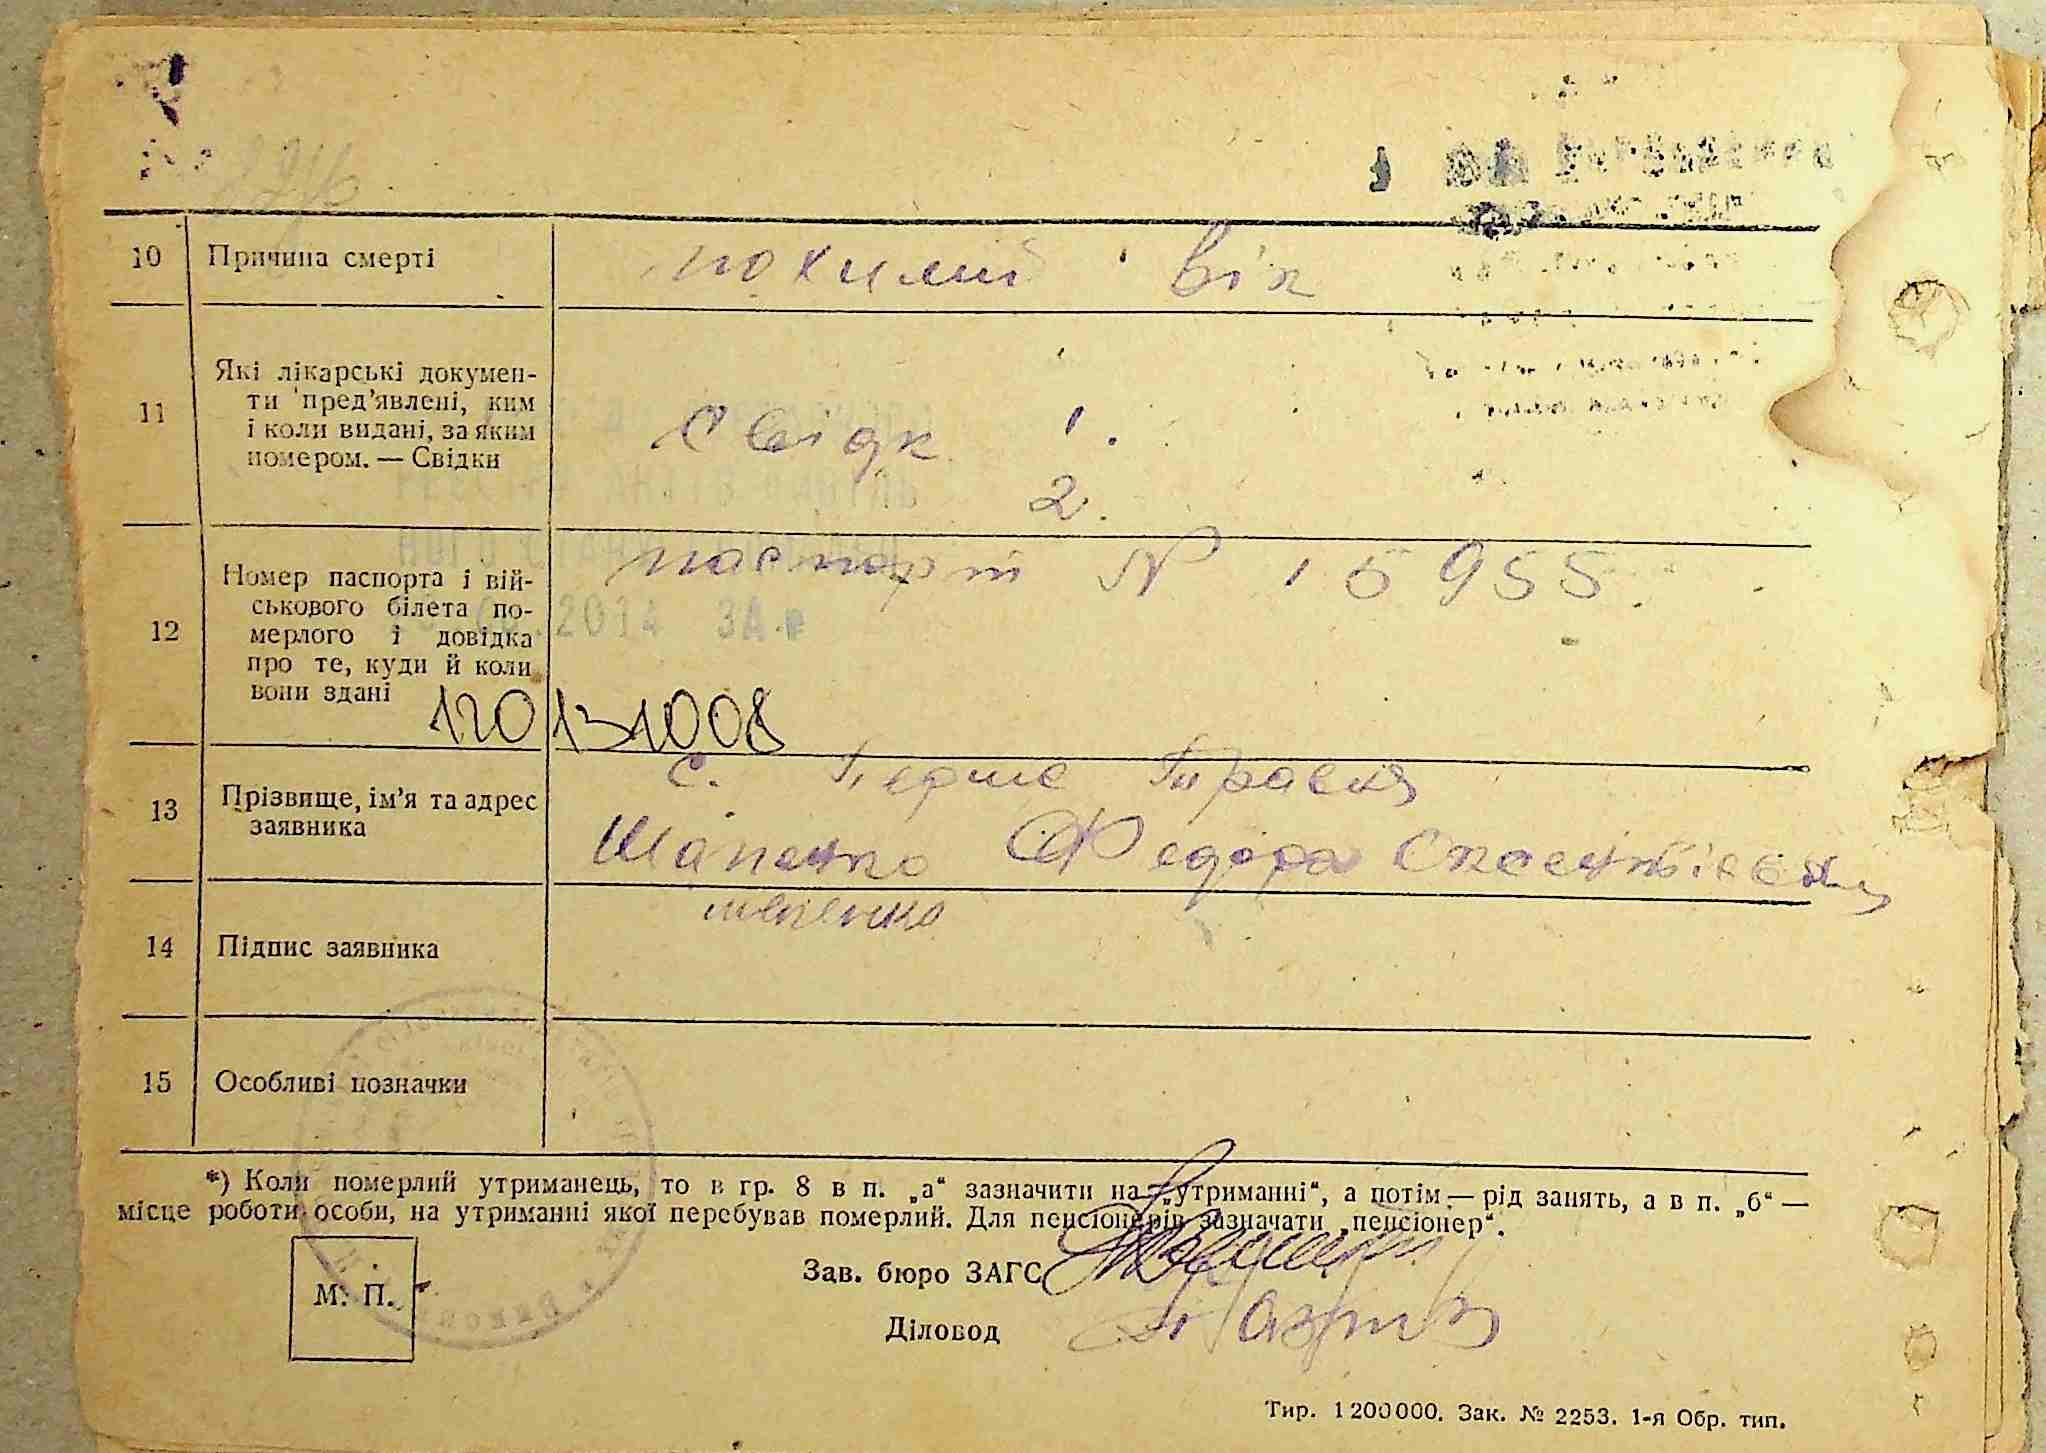 10 Причина смерті похилий вік
11 Які лікарські докумен-
ти пред'явлені, ким
і коли видані, за яким
номером. — Свідки
Свідк 1.
2.
паспорт № 15955.
12 Номер паспорта і вій-
ськового білета по-
мерлого і довідка
про те, куди й коли
вони здані
2014 ЗАг
120131008
с. Перше Травня
13 Прізвище, ім'я та адрес
заявника
Шапенко Федора
14 Підпис заявника
15 Особливі позначки
*) Коли померлий утриманець, то в гр. 8 в п. „а“ зазначити на „утриманні“, а потім — рід занять, а в п. „б“ —
місце роботи особи, на утриманні якої перебував померлий. Для пенсіонерів зазначати „пенсіонер“.
Зав. бюро ЗАГС
М. П.
Діловод
Тир. 1200000. Зак. № 2253. 1-я Обр. тип.